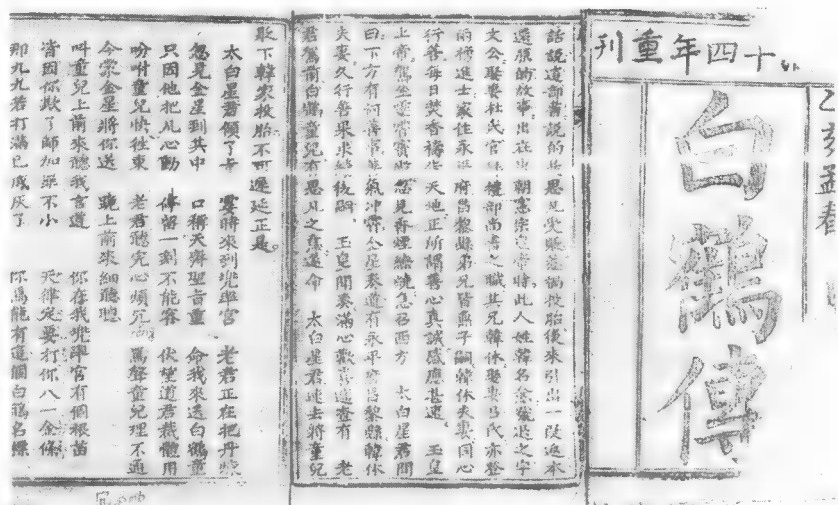 乙亥孟春
十四年重刊
白鶴傳
話說這部書說的是思凡受貶 投胎後來引出一段返本
還原的故事出在唐朝憲宗皇帝時此人姓韓名愈號退之字
文公娶妻杜氏官任禮部尚書之職其兄韓休娶妻呂氏亦登
的榜進士家住永平府昌黎縣弟兄皆無子嗣韓休夫妻同心
行善每日焚香禱告天地正所謂善心真誠感應甚速 玉皇
上帝駕坐靈霄寶殿忽見香煙繚繞急召西方 太白星君問
曰下方有何善事善氣冲霄金星奏道有永平府昌黎縣韓休
夫妻久行善果求賜後嗣 玉皇聞奏滿心歡喜遂查有 老
君駕前白鶴童兒有思凡之意遂命 太白星君速去將童兒
貶下韓家投胎不可遲延正是。
太白星君領了旨 霎時來到兜率宮 老君正在把丹煉
忽見金星到其中 口稱天齊聖旨重 命我來送白鶴童
只因他把凡心動 停留一刻不能容 伏望道君裁體用
吩咐童兒快往東 老君聽完心煩冗 罵聲童兒理不通
今蒙金星將你送 跪上前來細聽聰
叫童兒上前來聽我言道 你在我兜率宮有個根苗
皆因你欺了師加罪不小 天律定要打你八一金條
那九九若打滿已成灰了 你焉能有這個白鶴名標